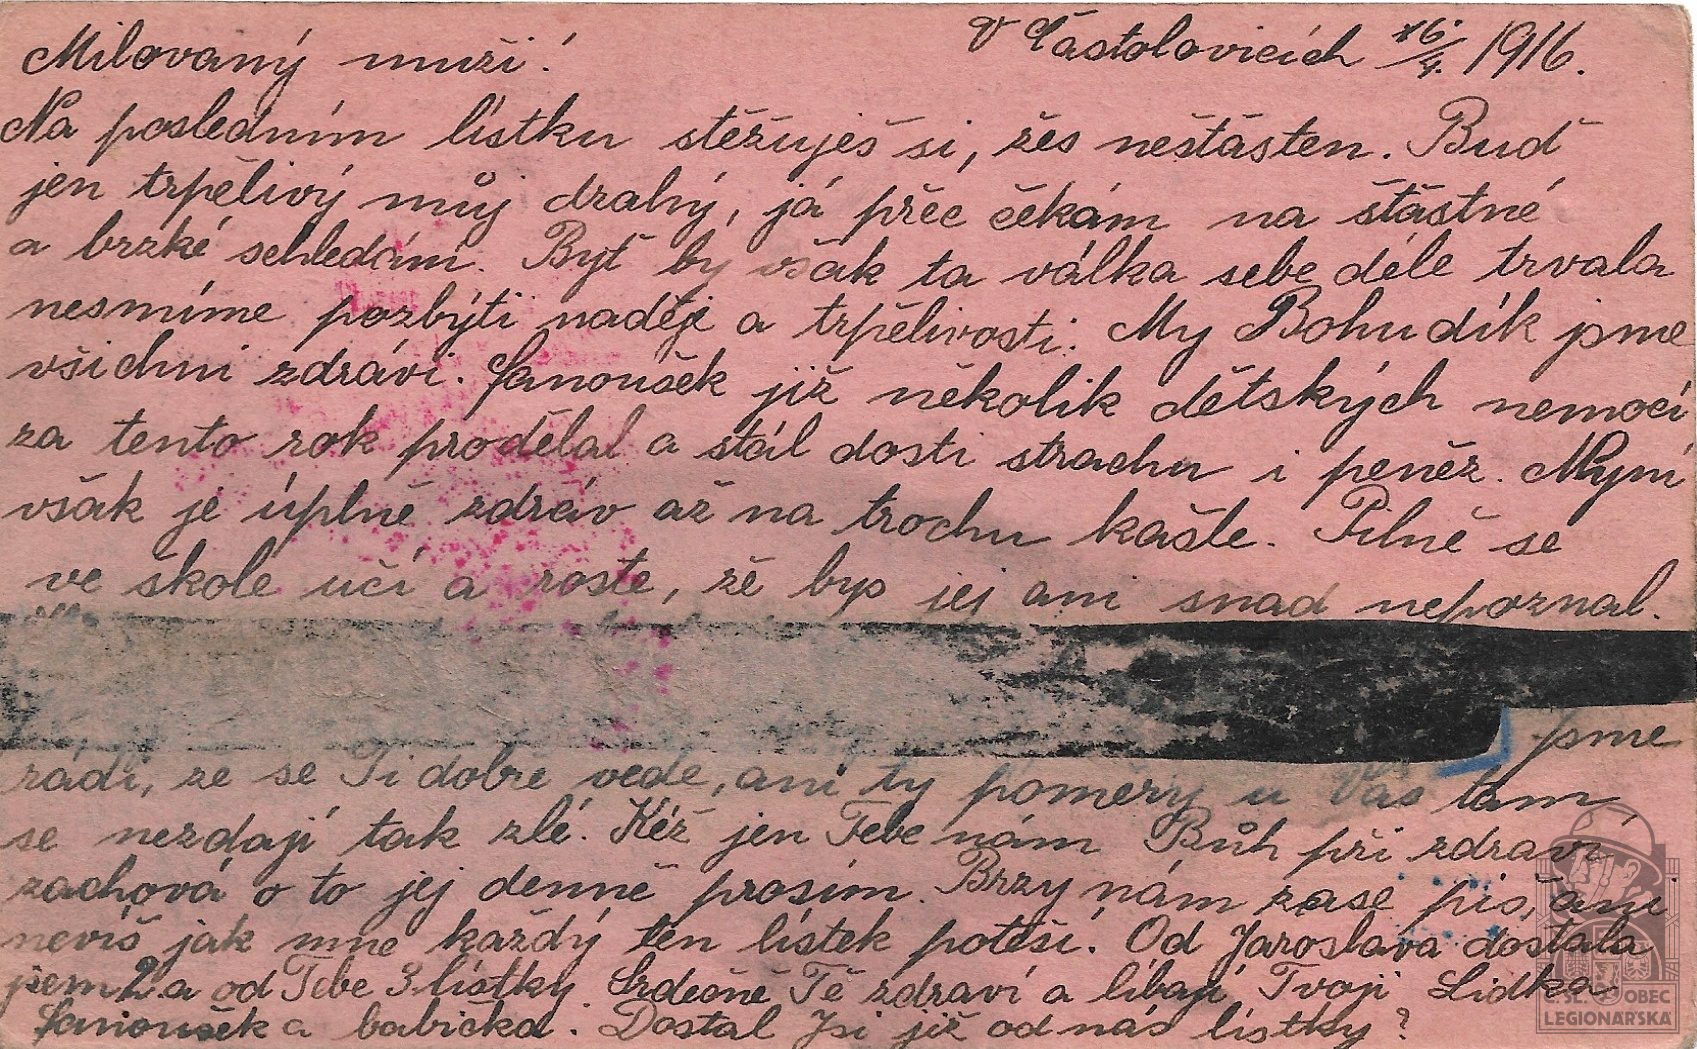 V Častolovicích 16/4. 1916.
Milovaný muži!
Na posledním lístku stěžuješ si, žes nešťasten. Buď
jen trpělivý můj drahý, já přec čekám na šťastné
a brzké sehledání. Byť by však ta válka sebe déle trvala
nesmíme pozbýti naděje a trpělivosti. My Bohudík jsme
všichni zdrávi. Janoušek již několik dětských nemocí
za tento rok prodělal a stál dosti strachu i peněz. Nyní
však je úplně zdráv až na trochu kašle. Pilně se
ve škole učí a roste, že bys jej ani snad nepoznal.
jsme
rádi, že se Ti dobře vede, ani ty poměry u Vás tam
se nezdají tak zlé. Kéž jen Tebe nám Bůh při zdraví
zachová o to jej denně prosím. Brzy nám zase piš, ani
nevíš jak mne každý ten lístek potěší. Od Jaroslava dostala
jsem 2 a od Tebe 3 lístky. Srdečně Tě zdraví a líbají Tvoji Lidka
Janoušek a babička. Dostal Jsi již od nás lístky?
Č. SL. OBEC
LEGIONÁŘSKÁ